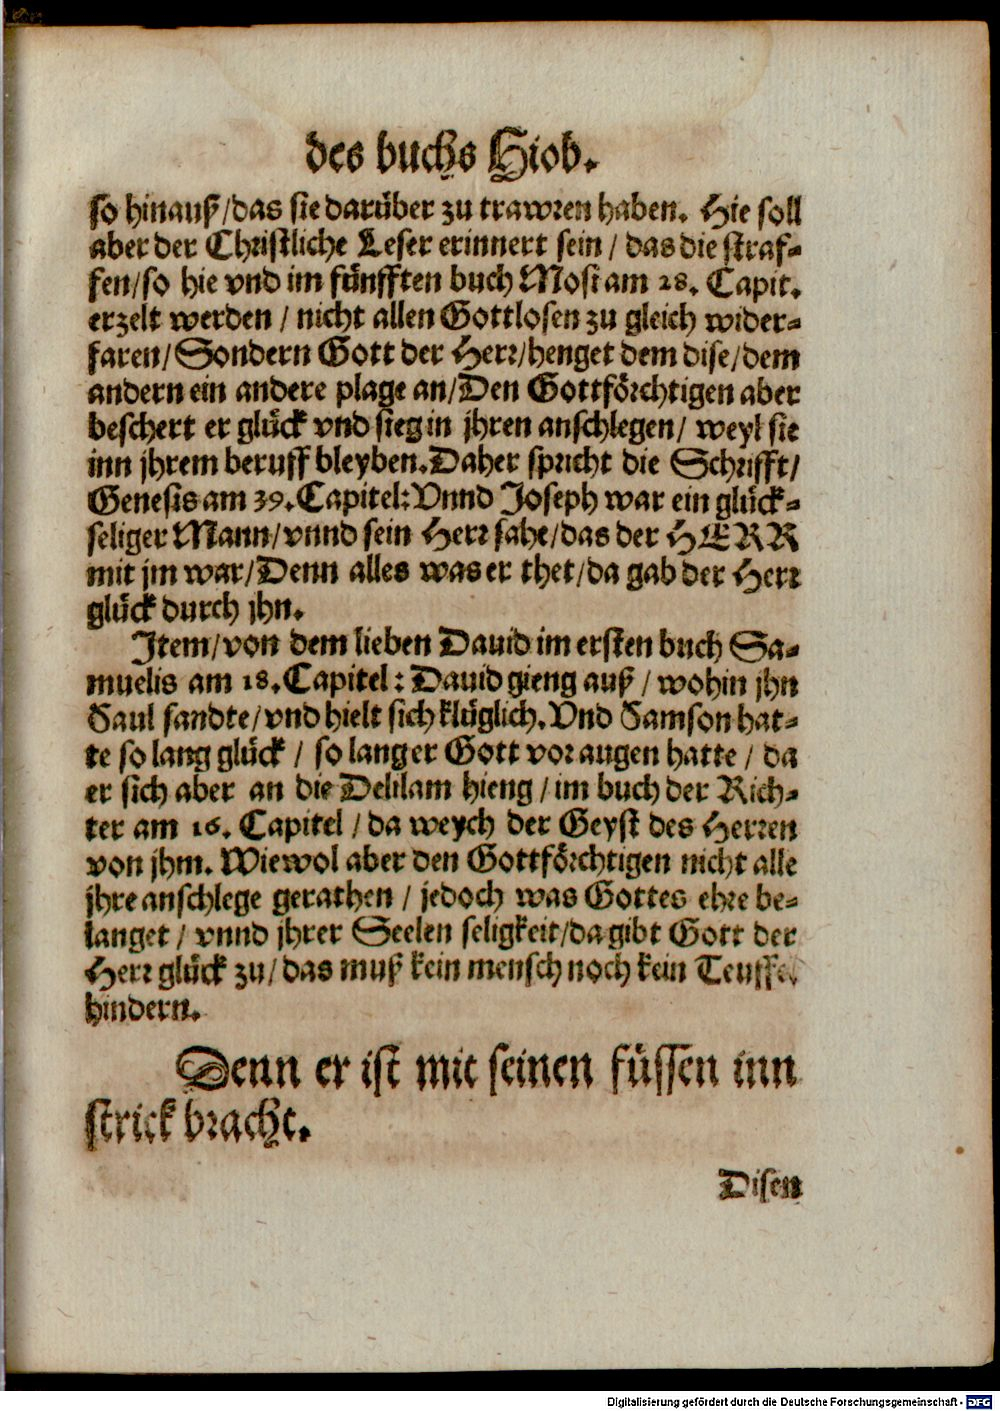 des buchs Hiob.
so hinauß/das sie darüber zu trawren haben. Hie soll
aber der Christliche Leser erinnert sein / das die straf-
fen/so hie vnd im fünfften buch Mosi am 28. Capit.
erzelt werden / nicht allen Gottlosen zu gleich wider-
faren/Sondern Gott der Herr/henget dem dise/dem
andern ein andere plage an/Den Gottförchtigen aber
beschert er glück vnd sieg in jhren anschlegen/ weyl sie
inn jhrem beruff bleyben. Daher spricht die Schrifft/
Genesis am 39. Capitel: Vnnd Joseph war ein glück-
seliger Mann/vnnd sein Herr sahe/das der HERR
mit jm war/Denn alles was er thet/da gab der Herr
glück durch jhn.
Item/von dem lieben Dauid im ersten buch Sa-
muelis am 18. Capitel: Dauid gieng auß / wohin jhn
Saul sandte/vnd hielt sich klüglich. Vnd Samson hat-
te so lang glück / so lang er Gott vor augen hatte / da
er sich aber an die Delilam hieng / im buch der Rich-
ter am 16. Capitel / da weych der Geyst des Herren
von jhm. Wiewol aber den Gottförchtigen nicht alle
jhre anschlege gerathen / jedoch was Gottes ehre be-
langet / vnnd jhrer Seelen seligkeit/da gibt Gott der
Herr glück zu/das muß kein mensch noch kein Teuffel
hindern.
Denn er ist mit seinen füssen inn
strick bracht.
Disen
Digitalisierung gefördert durch die Deutsche Forschungsgemeinschaft - DFG